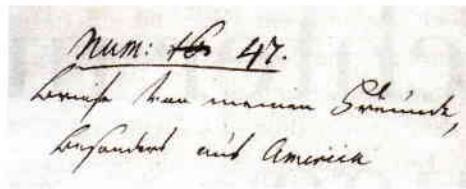 Num: 47.
Briefe von meinen Freunden,
besonders aus America